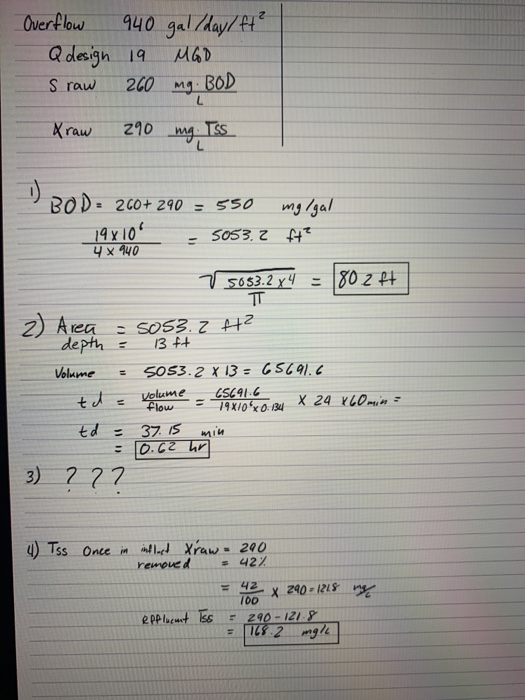 Overflow 940 gal/day/ft²
Q design 19 MGD
S raw 260 mg·BOD/L
X raw 290 mg·TSS/L
1) BOD = 260 + 290 = 550 mg/gal
19 x 10⁶ / 4 x 940 = 5053.2 ft²
√ 5053.2 x 4 / π = 80.2 ft
2) Area = 5053.2 ft²
depth = 13 ft
Volume = 5053.2 x 13 = 65691.6
td = volume / flow = 65691.6 / 19x10⁶x0.134 x 24 x60min =
td = 37.15 min
= 0.62 hr
3) ? ? ?
4) Tss Once in Xraw = 290
removed = 42%
= 42/100 x 290 = 121.8 mg/L
effluent Tss = 290 - 121.8
= 168.2 mg/L